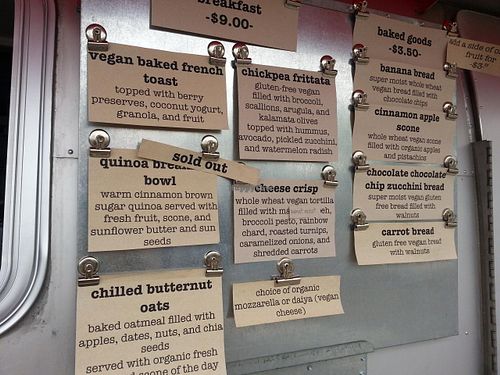 breakfast
-$9.00-
vegan baked french
toast
topped with berry
preserves, coconut yogurt,
granola, and fruit
sold out
quinoa
bowl
warm cinnamon brown
sugar quinoa served with
fresh fruit, scone, and
sunflower butter and sun
seeds
chilled butternut
oats
baked oatmeal filled with
apples, dates, nuts, and chia
seeds
served with organic fresh
scone of the day
chickpea frittata
gluten-free vegan
filled with broccoli,
scallions, arugula, and
kalamata olives
topped with hummus,
avocado, pickled zucchini,
and watermelon radish
cheese crisp
whole wheat vegan tortilla
filled with
broccoli pesto, rainbow
chard, roasted turnips,
caramelized onions, and
shredded carrots
choice of organic
mozzarella or daiya (vegan
cheese)
baked goods
-$3.50-
banana bread
super moist whole wheat
vegan bread filled with
chocolate chips
cinnamon apple
scone
whole vegan wheat scone
filled with organic apples
and pistachios
chocolate chocolate
chip zucchini bread
super moist vegan gluten
free bread filled with
walnuts
carrot bread
gluten free vegan bread
with walnuts
add a side of
fruit for